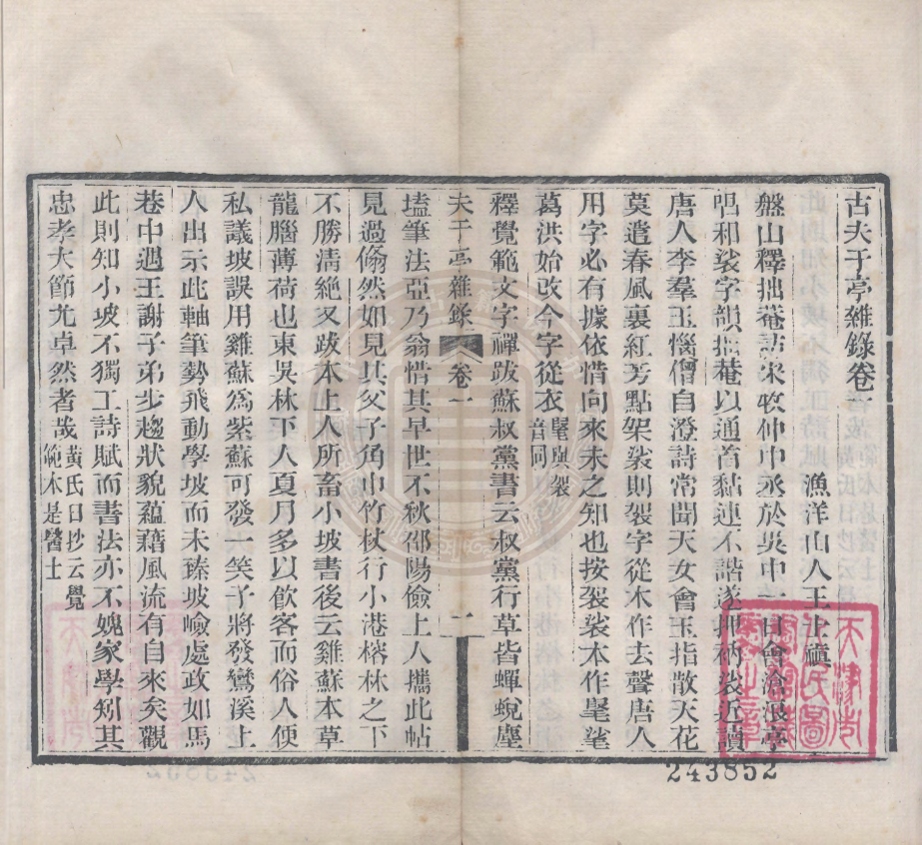 古夫于亭雜錄卷一
漁洋山人王士禛
盤山釋拙菴訪宋牧仲中丞於吳中一日會滄浪亭
唱和裟字韻拙菴以通首黏連不諧遂押衲裟近讀
唐人李羣玉惱僧自澄詩常聞天女會玉指散天花
莫遣春風裏紅芳點架裟則袈字從木作去聲唐人
用字必有據依惜向來未之知也按袈裟本作毠㲚
葛洪始改今字從衣毠與袈音同
釋覺範文字禪跋蘇叔黨書云叔黨行草皆蟬蛻塵
夫于亭雜錄 卷一 一
壒筆法亞乃翁惜其早世不秋邵陽儉上人攜此帖
見過翛然如見其父子角巾竹杖行小港榕林之下
不勝淸絕又跋本上人所畜小坡書後云雞蘇本草
龍腦薄荷也東吳林下人夏月多以飮客而俗人便
私議坡誤用雞蘇爲紫蘇可發一笑予將發鸞溪上
人出示此軸筆勢飛動學坡而未臻坡嶮處政如馬
巷中遇王謝子弟步趨狀貌蘊藉風流有自來矣觀
此則知小坡不獨工詩賦而書法亦不媿家學矧其
忠孝大節尤卓然者哉黄氏日抄云覺範本是醫士
243852